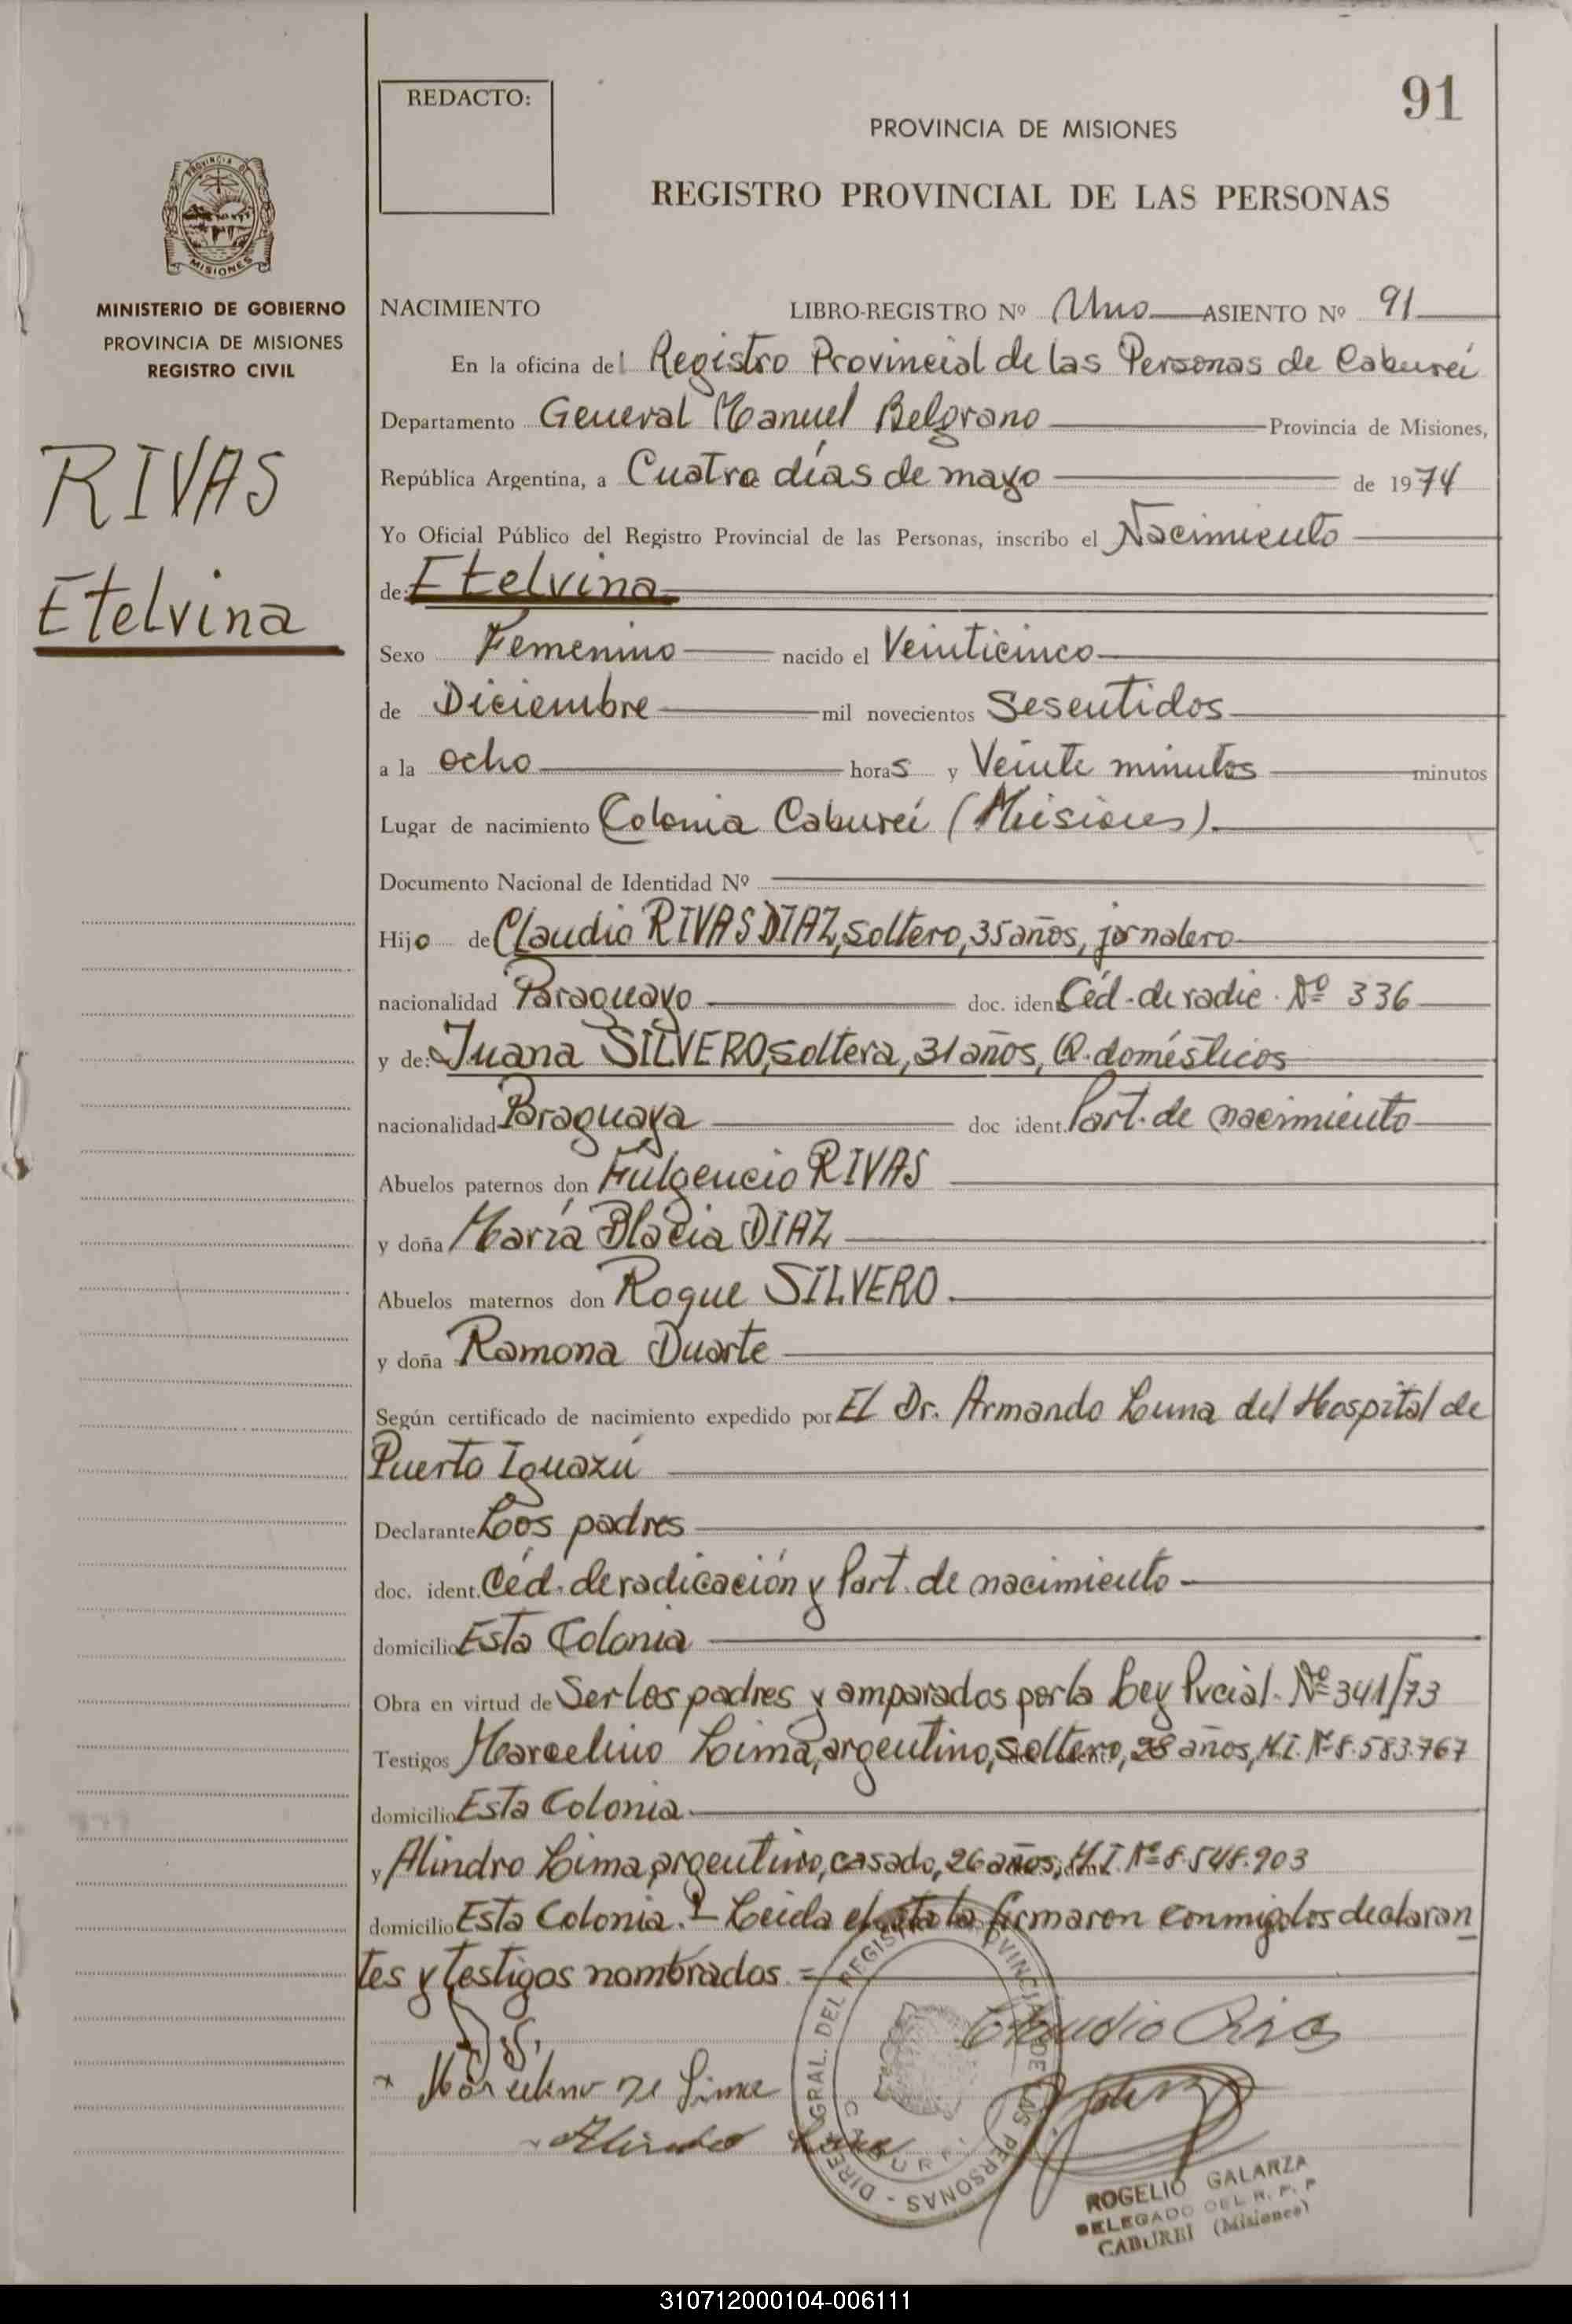 REDACTO:
91
PROVINCIA DE MISIONES
REGISTRO PROVINCIAL DE LAS PERSONAS
PROVINCIA DE
MISIONES
MINISTERIO DE GOBIERNO
PROVINCIA DE MISIONES
REGISTRO CIVIL
RIVAS
Etelvina
NACIMIENTO LIBRO-REGISTRO Nº Uno ASIENTO Nº 91
En la oficina del Registro Provincial de las Personas de Cabureí
Departamento General Manuel Belgrano Provincia de Misiones,
República Argentina, a Cuatro días de mayo de 1974
Yo Oficial Público del Registro Provincial de las Personas, inscribo el Nacimiento
de: Etelvina
Sexo Femenino nacido el Veinticinco
de Diciembre mil novecientos Sesentidos
a la ocho horas y Veinte minutos minutos
Lugar de nacimiento Colonia Cabureí (Misiones).
Documento Nacional de Identidad Nº
Hijo de Claudio RIVAS DIAZ, soltero, 35 años, jornalero
nacionalidad Paraguayo doc. ident. Céd. de radic. Nº 336
y de: Juana SILVERO, soltera, 31 años, Q. domésticos
nacionalidad Paraguaya doc ident. Part. de nacimiento
Abuelos paternos don Fulgencio RIVAS
y doña María Blacia DIAZ
Abuelos maternos don Roque SILVERO.
y doña Ramona Duarte
Según certificado de nacimiento expedido por El Dr. Armando Luna del Hospital de
Puerto Iguazú
Declarante Los padres
doc. ident. Céd. de radicación y Part. de nacimiento
domicilio Esta Colonia
Obra en virtud de Ser los padres y amparados por la Ley Pvcial. Nº 341/73
Testigos Marcelino Lima, argentino, soltero, 28 años, M.I. Nº 8.583.767
domicilio Esta Colonia.
y Alindro Lima, argentino, casado, 26 años, M.I. Nº 8.548.903
domicilio Esta Colonia. Leida el acta la firmaron conmigo los declaran
tes y testigos nombrados =
DIREC. GRAL. DEL REGISTRO PROVINCIAL DE LAS PERSONAS -
Claudio Rivas
Marcelino de Lima
Alindro Lima
ROGELIO GALARZA
DELEGADO DEL R. P. P
CABUREI (Misiones)
310712000104-006111